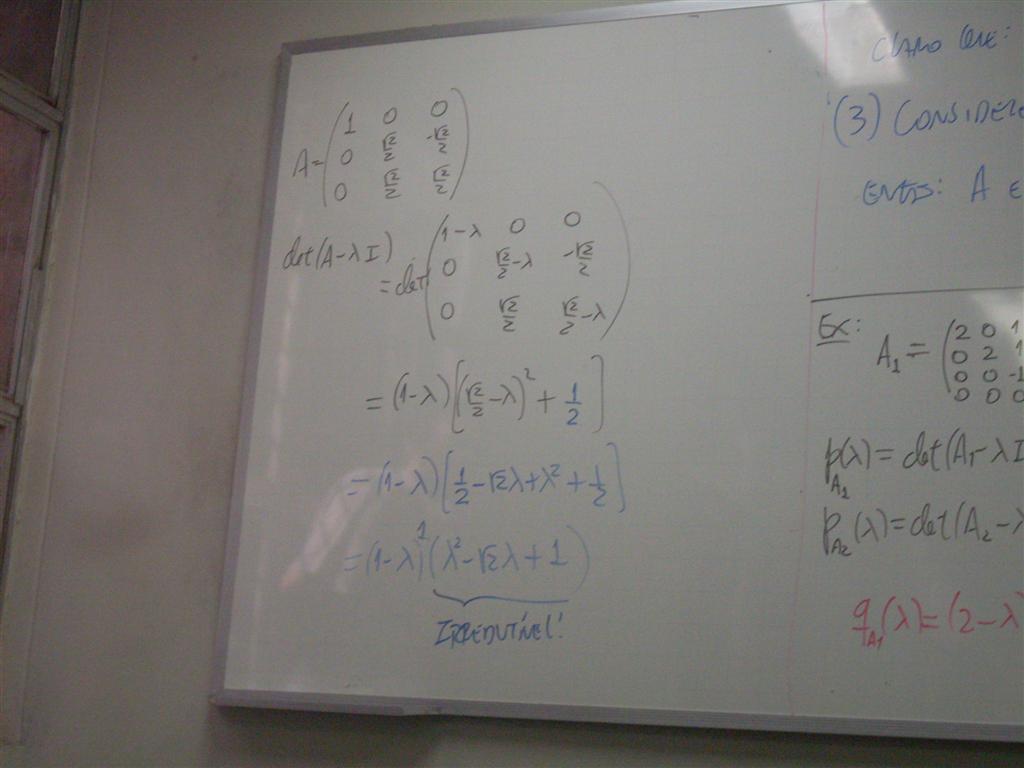 A = (1 0 0
0 √2/2 -√2/2
0 √2/2 √2/2)
det(A-λI)
= det (1-λ 0 0
0 √2/2-λ -√2/2
0 √2/2 √2/2-λ)
= (1-λ)[(√2/2-λ)² + 1/2]
= (1-λ)[1/2-√2λ+λ²+1/2]
= (1-λ)¹(λ²-√2λ+1)
IRREDUTÍVEL!
CLARO QUE:
(3) CONSIDERE
ENTÃO: A E
Ex:
A₁ = (2 0 1
0 2 1
0 0 -1
0 0 0
p_A₁(λ) = det(A₁-λI
p_A₂(λ) = det(A₂-λ
q_A₁(λ) = (2-λ)